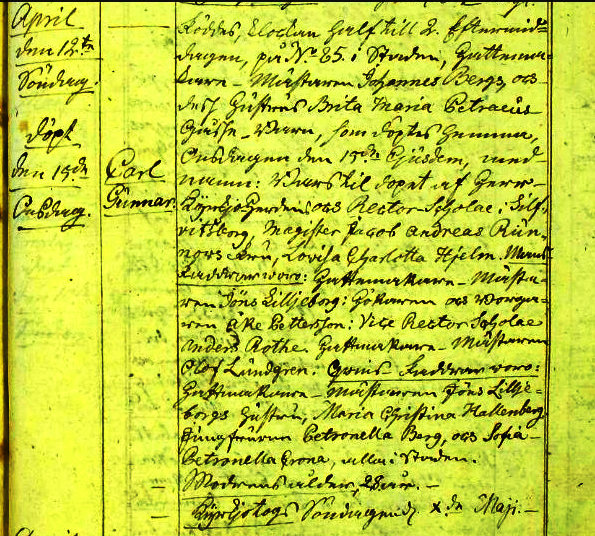 April
den 12te
Söndag.
döpt
den 15de
Onsdag.
Carl
Gunnar.
Föddes, Clockan half till 2. Eftermid-
dagen, på N. 85. i Staden, Hattema-
kare-Mästaren Johannes Bergs, och
dess Hustrus Brita Maria Petraeus
Gosse-Barn, som döptes hemma,
Onsdagen den 15de Ejusdem, med
namn: Bars til dopet af Herr
Kyrkjo Herdens och Rector Scholae i Sölf-
vitsborg, Magister Jacob Andreas
Fru, Lovisa Charlotta Hjelm. Mans
Faddrar woro: Hattemakare-Mästa-
ren Jöns Lilljeborg: och Borga-
ren Åke Pettersson: Vice Rector Scholae
Anders Rothe. Hattmakare-Mästaren
Olof Lundgren: Qwins Faddrar woro:
Hattmakare-Mästaren Jöns Lillje-
borgs Hustru, Maria Christina Hallenberg
Jungfrurna Petronella Berg, och Sofia
Petronella Crona, alla i Staden.
Modrens ålder, 28 år. -
Kyrkjotogs Söndagen d. x de Maji. -